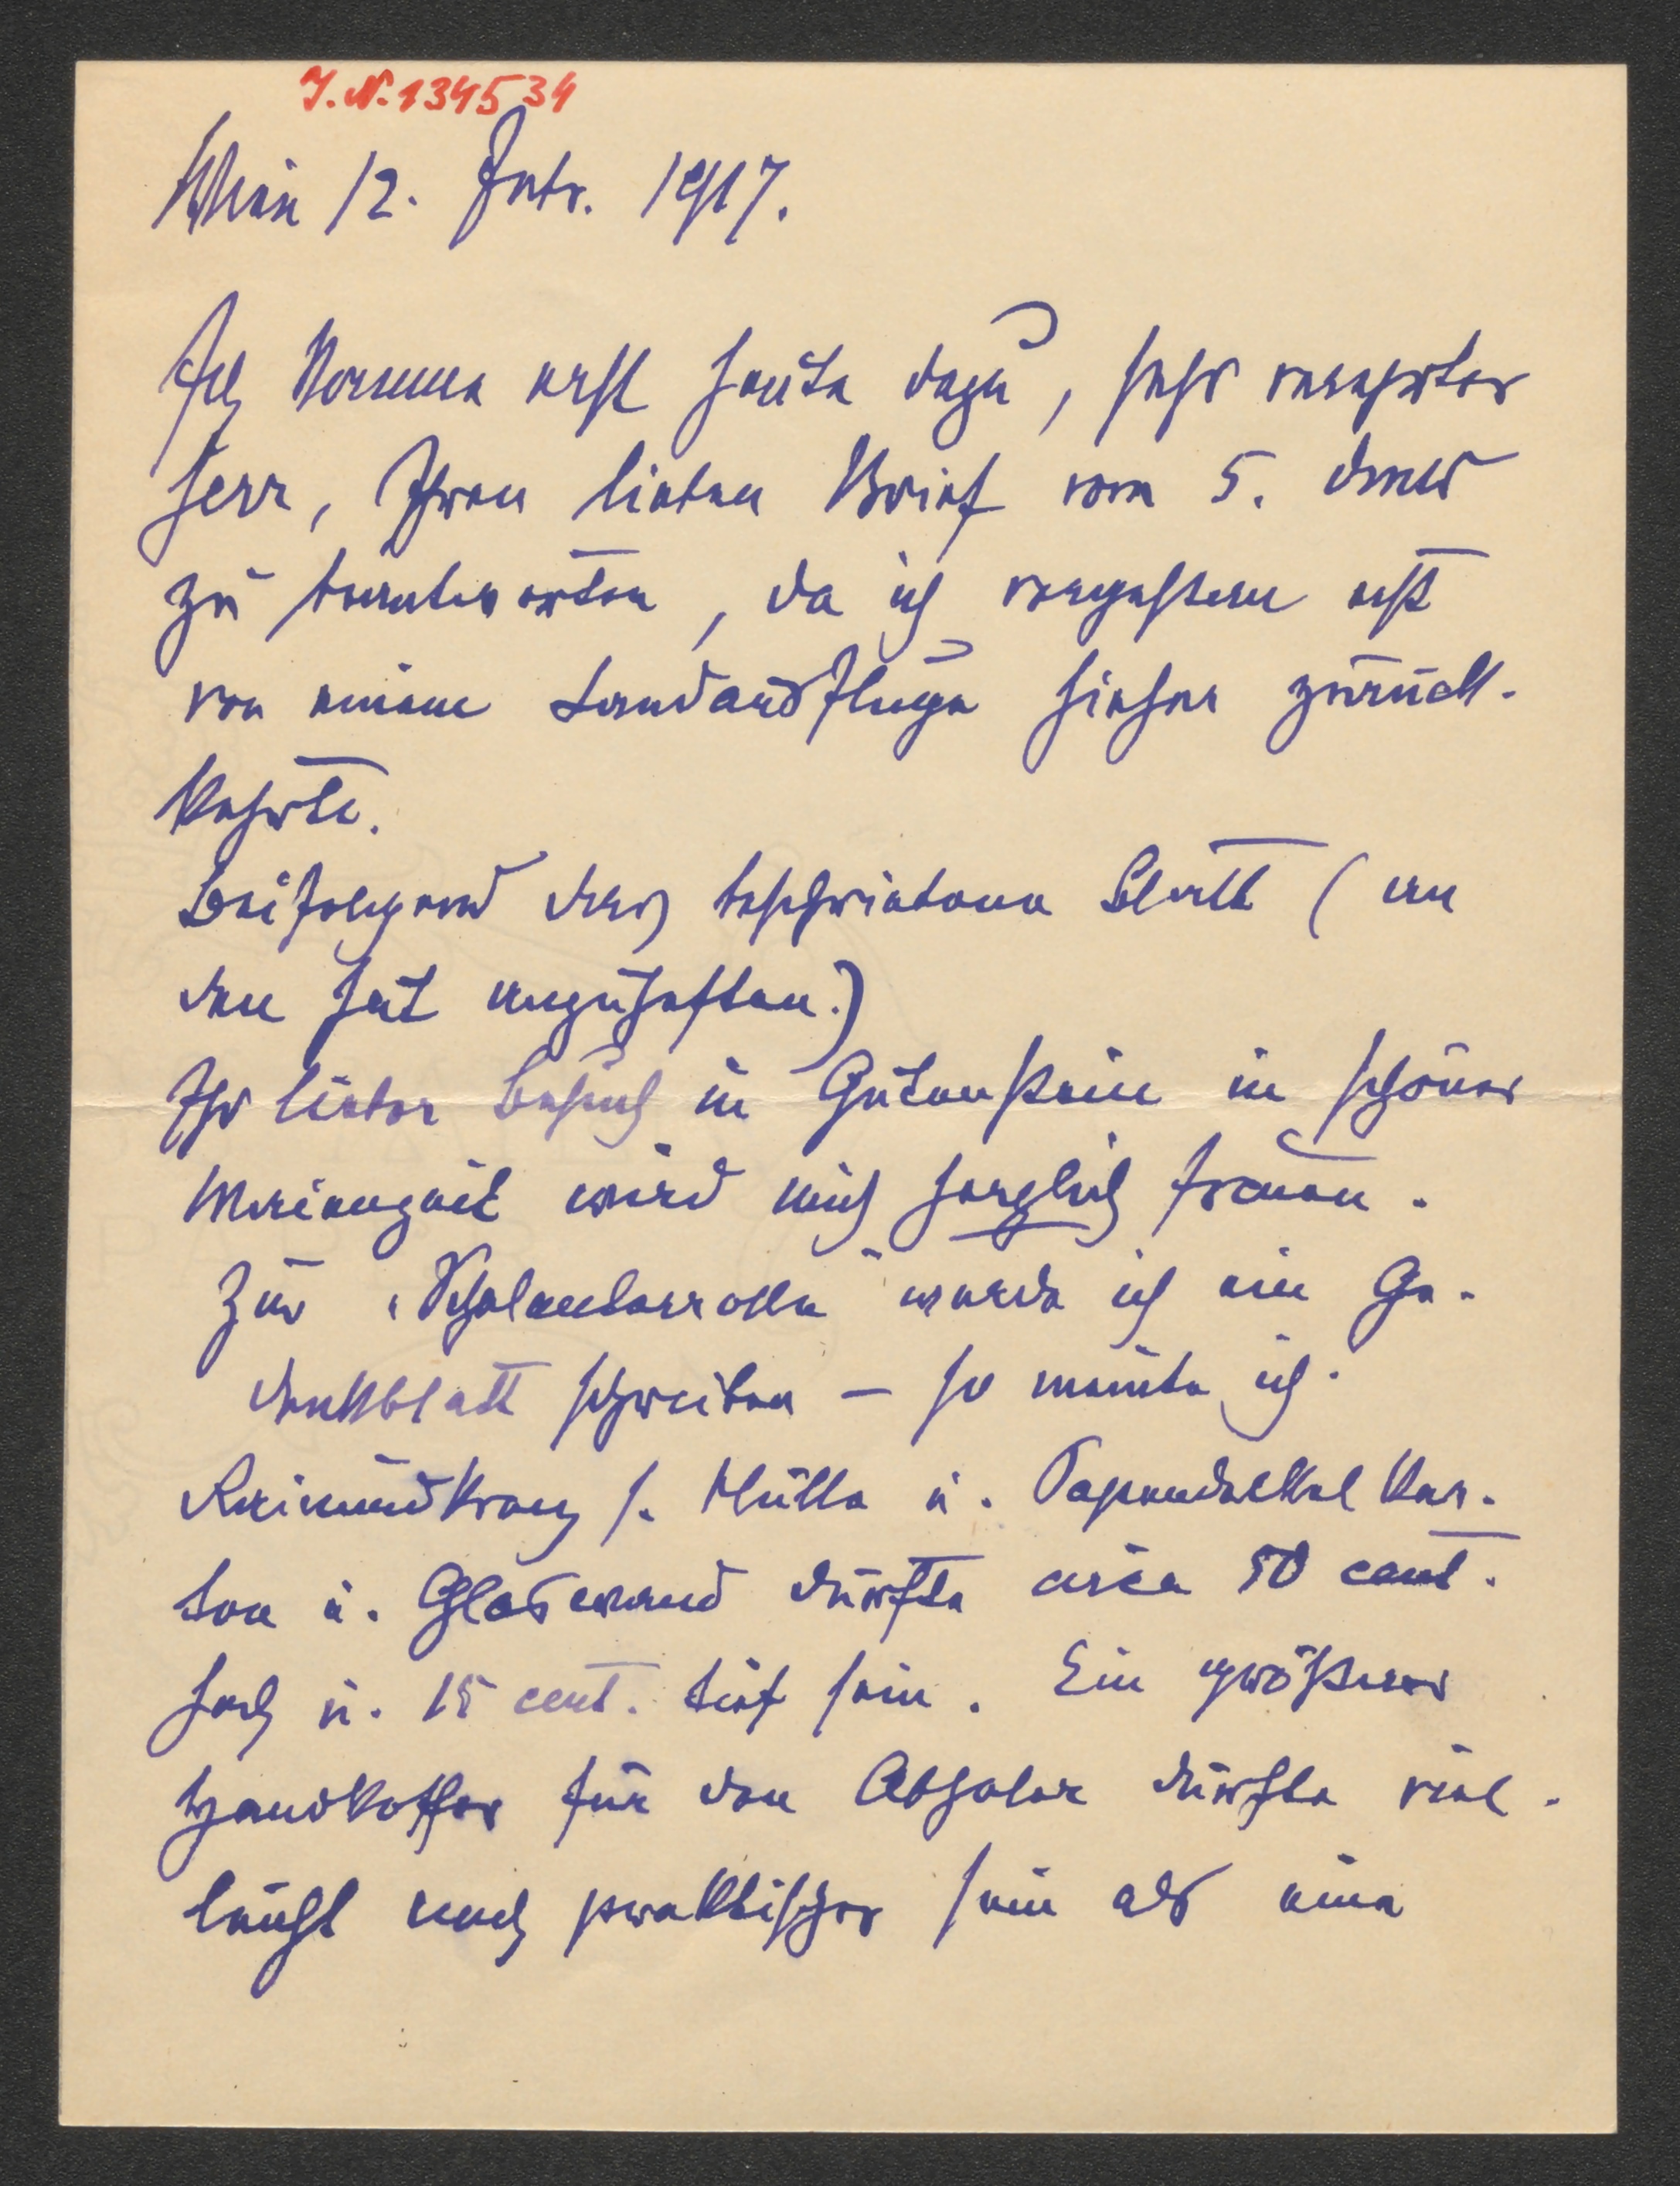 J.N. 134534
Wien 12. Febr. 1917.
Ich komme erst heute dazu, sehr verehrter
Herr, Ihren lieben Brief vom 5. dmts
zu beantworten, da ich vorgestern erst
von einem Landausfluge hieher zurück-
kehrte.
Beifolgend das beschriebene Blatt (an
den Hut anzuheften.)
Ihr lieber Besuch in Gutenstein in schöner
Maienzeit wird mich herzlich freuen.
Zur „Valentinrolle" werde ich ein Ge-
denkblatt schreiben – so meinte ich.
Raimundkranz s. Hülle u. Papendeckel Kar-
ton u. Glaswand dürfte circa 50 cent.
hoch u. 15 cent. tief sein. Ein größerer
Handkoffer für den Abholer dürfte viel-
leicht noch praktischer sein als eine